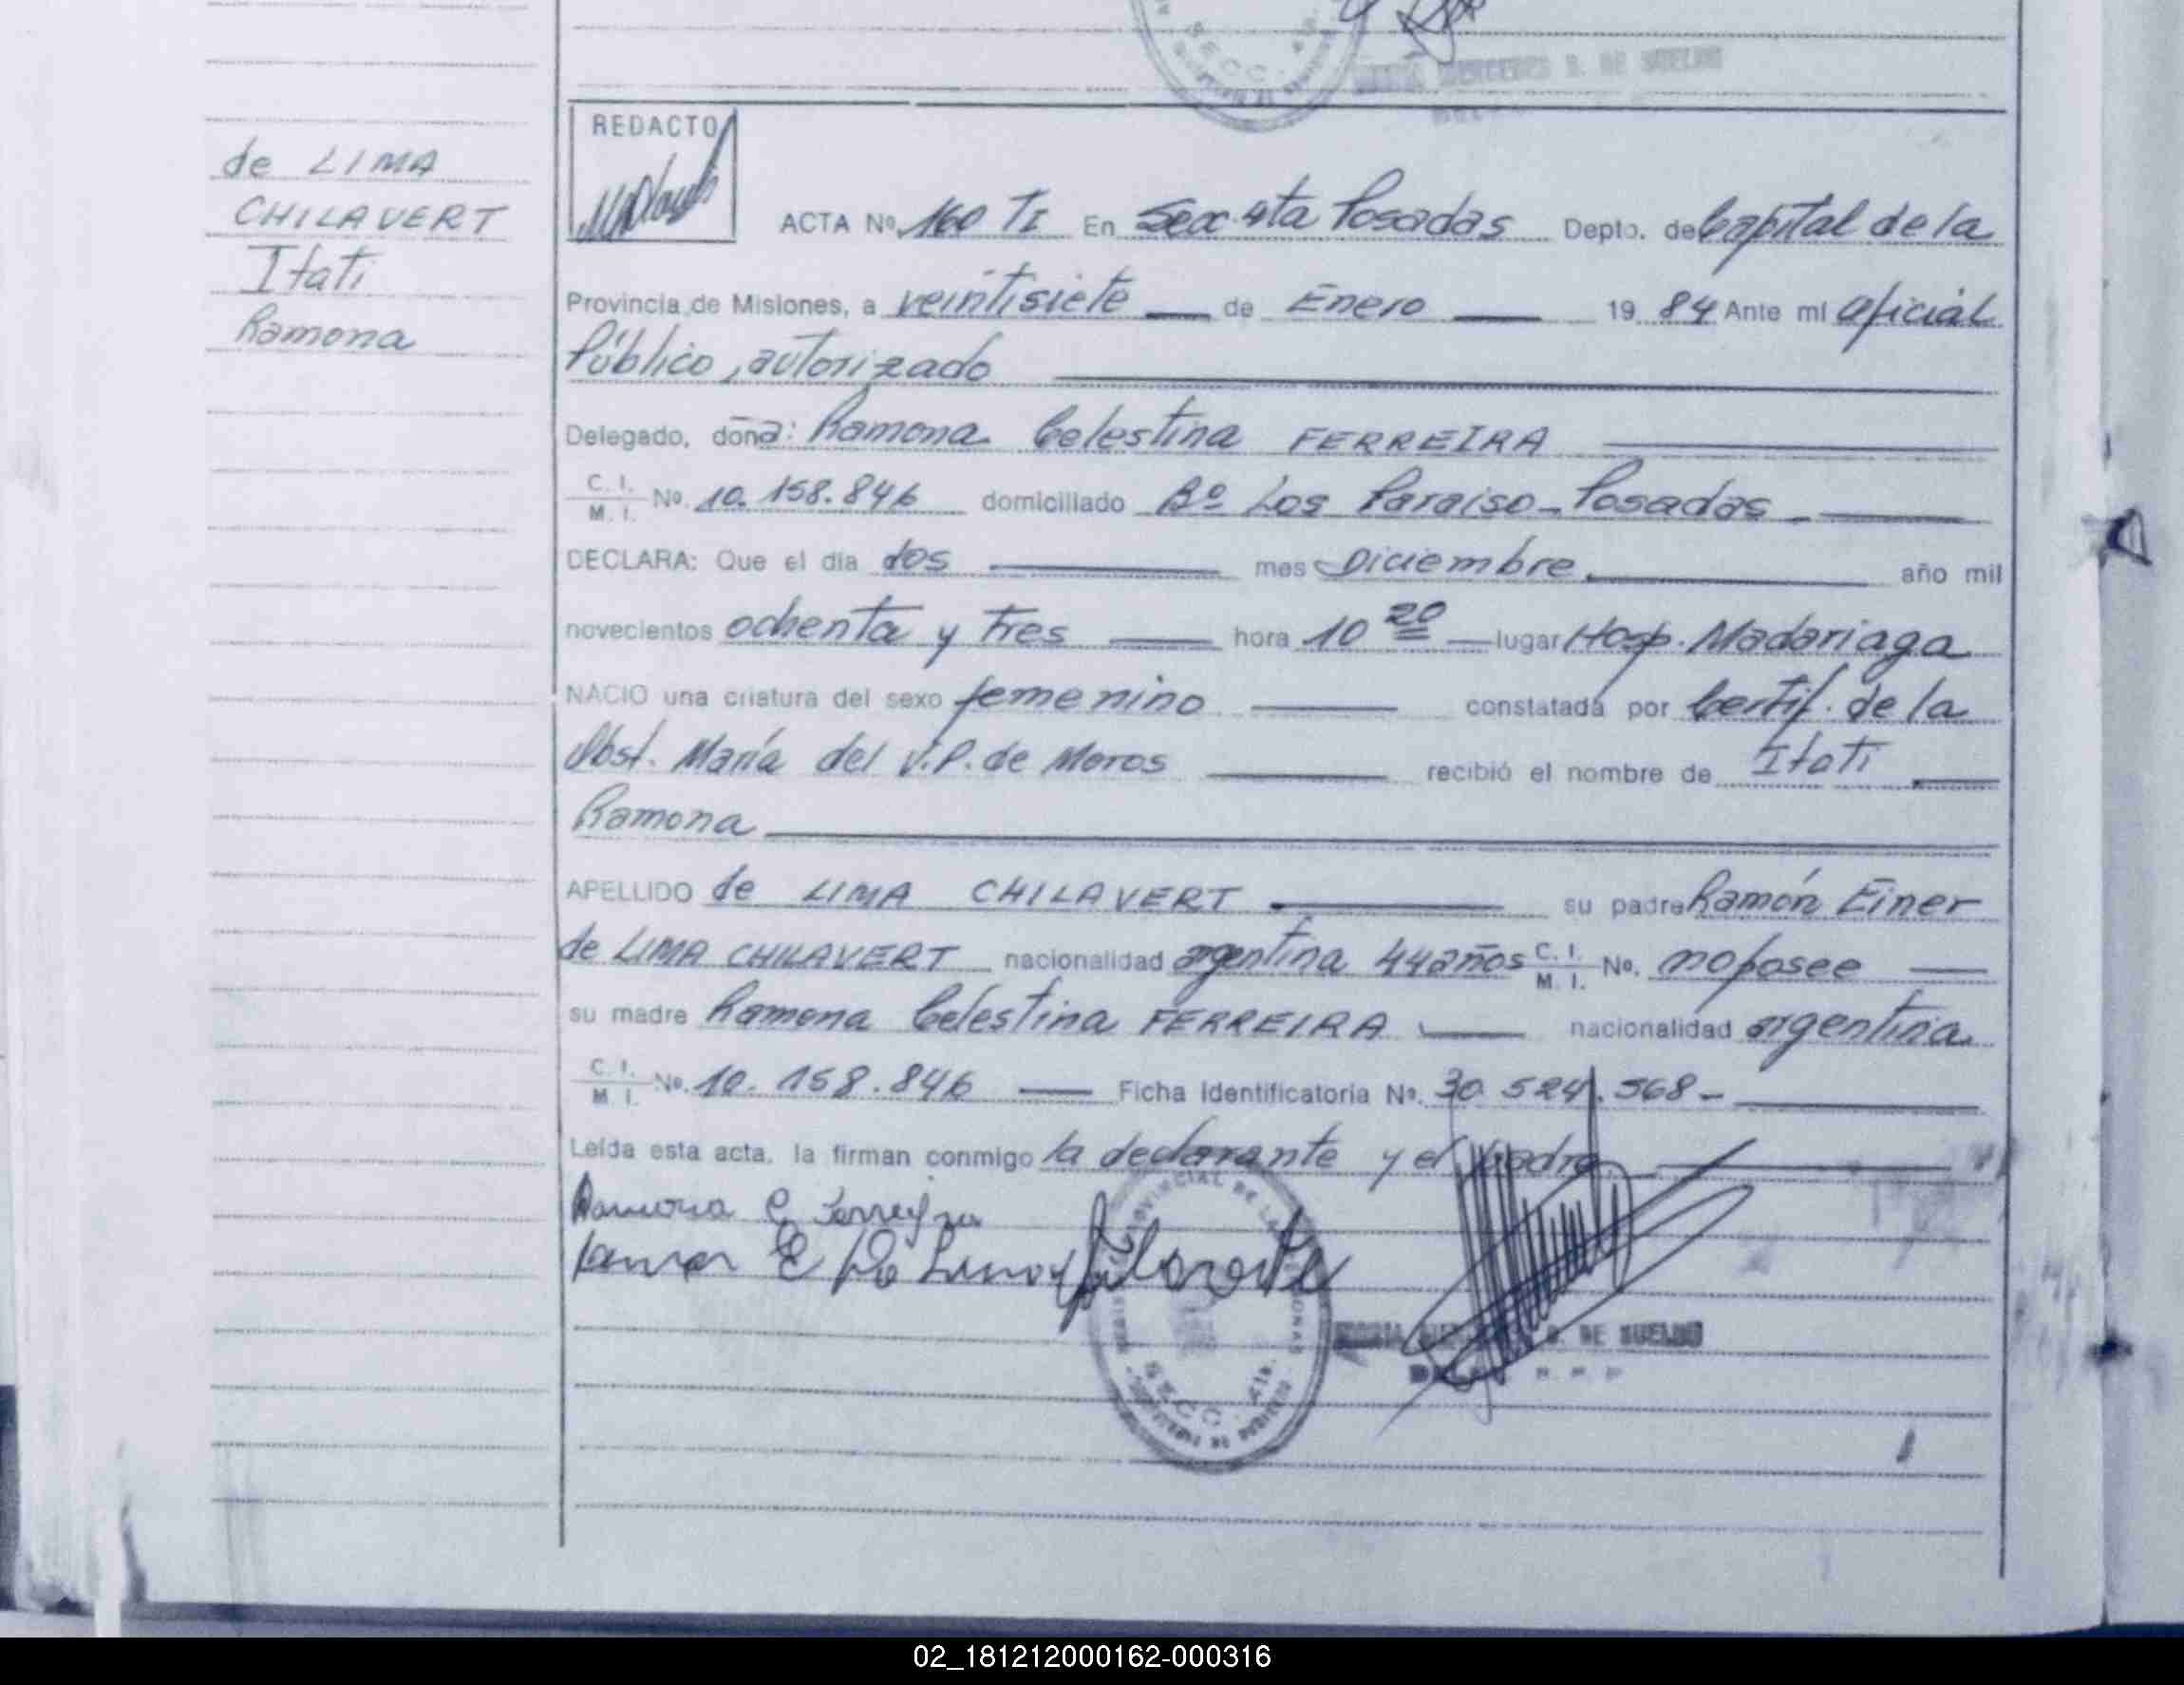 SECC. 4ta.
MARIA MERCEDES S. DE SUELDO
de LIMA
CHILAVERT
Itatí
Ramona
REDACTO
ACTA Nº 160 TI En Secc. 4ta Posadas Depto. de Capital de la
Provincia de Misiones, a veintisiete de Enero 19 84 Ante mí Oficial
Público, autorizado
Delegado, doña: Ramona Celestina FERREIRA
C. I. M. I. Nº 10.158.846 domiciliado Bº Los Paraiso - Posadas -
DECLARA: Que el día dos mes Diciembre año mil
novecientos ochenta y tres hora 10 20 lugar Hosp. Madariaga
NACIO una criatura del sexo femenino constatada por Certif. de la
Obst. María del V.P. de Moros recibió el nombre de Itatí
Ramona
APELLIDO de LIMA CHILAVERT su padre Ramón Einer
de LIMA CHILAVERT nacionalidad argentina 44 años C. I. M. I. No. no posee
su madre Ramona Celestina FERREIRA nacionalidad argentina
C. I. M. I. No. 10.158.846 Ficha Identificatoria Nº 30.524.568 -
Leída esta acta, la firman conmigo la declarante y el padre
Ramona C Ferreira
SECC. 4ta.
MARIA MERCEDES S. DE SUELDO
02_181212000162-000316